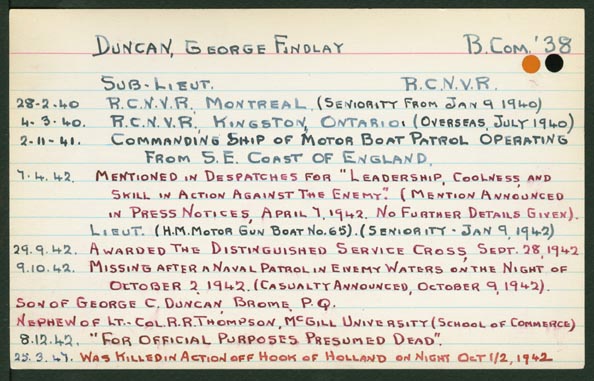 DUNCAN, GEORGE FINDLAY B.COM.'38
SUB-LIEUT. R.C.N.V.R.
28-2-40 R.C.N.V.R, MONTREAL, (SENIORITY FROM JAN 9, 1940)
4-3-40. R.C.N.V.R, KINGSTON, ONTARIO. (OVERSEAS, JULY 1940)
2-11-41. COMMANDING SHIP OF MOTOR BOAT PATROL OPERATING
FROM S.E. COAST OF ENGLAND.
7.4.42. MENTIONED IN DESPATCHES FOR "LEADERSHIP, COOLNESS, AND
SKILL IN ACTION AGAINST THE ENEMY". (MENTION ANNOUNCED
IN PRESS NOTICES, APRIL 7, 1942. NO FURTHER DETAILS GIVEN).
LIEUT. (H.M. MOTOR GUN BOAT NO. 65). (SENIORITY - JAN 9, 1942)
29.9.42. AWARDED THE DISTINGUISHED SERVICE CROSS, SEPT. 28, 1942
9.10.42. MISSING AFTER A NAVAL PATROL IN ENEMY WATERS ON THE NIGHT OF
OCTOBER 2, 1942. (CASUALTY ANNOUNCED, OCTOBER 9, 1942).
SON OF GEORGE C. DUNCAN, BROME, P.Q.
NEPHEW OF LT.-COL. R.R. THOMPSON, MCGILL UNIVERSITY (SCHOOL OF COMMERCE)
8.12.42. "FOR OFFICIAL PURPOSES PRESUMED DEAD".
25.3.47. WAS KILLED IN ACTION OFF HOOK OF HOLLAND ON NIGHT OCT 1/2, 1942